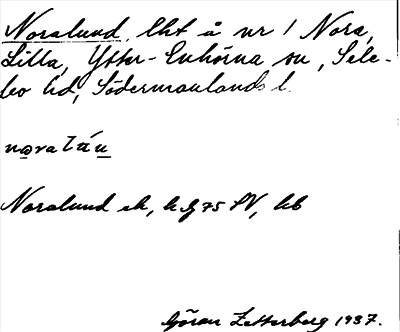 Noralund, lht å nr 1 Nora,
Lilla, Ytter-Enhörna sn, Sele-
bo hd, Södermanlands l.
Noralund ek, SV, kb
Göran Zetterberg 1937.